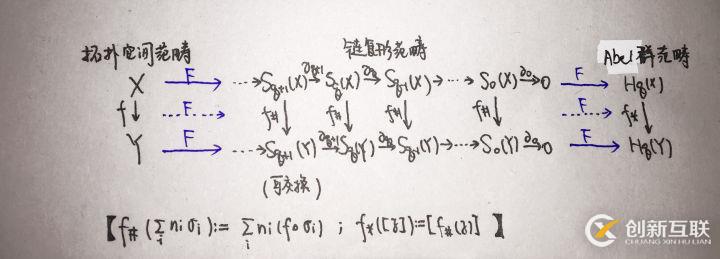 拓扑空间范畴 链复形范畴 Abel群范畴
X F ⋯→ S_{q+1}(X) ∂_{q+1}→ S_q(X) ∂_q→ S_{q-1}(X) →⋯→ S_0(X) ∂_0→ 0 F H_q(X)
f↓ F f_# ↓ f_# ↓ f_# ↓ f_# ↓ F f_* ↓
Y F ⋯→ S_{q+1}(Y) ∂_{q+1}→ S_q(Y) ∂_q→ S_{q-1}(Y) →⋯→ S_0(Y) ∂_0→ 0 F H_q(Y)
(可交换)
【f_#(∑_i n_iσ_i) := ∑_i n_i(f∘σ_i) ; f_*([z]):=[f_#(z)] 】
创新互联
CHUANG XIN HU LIAN